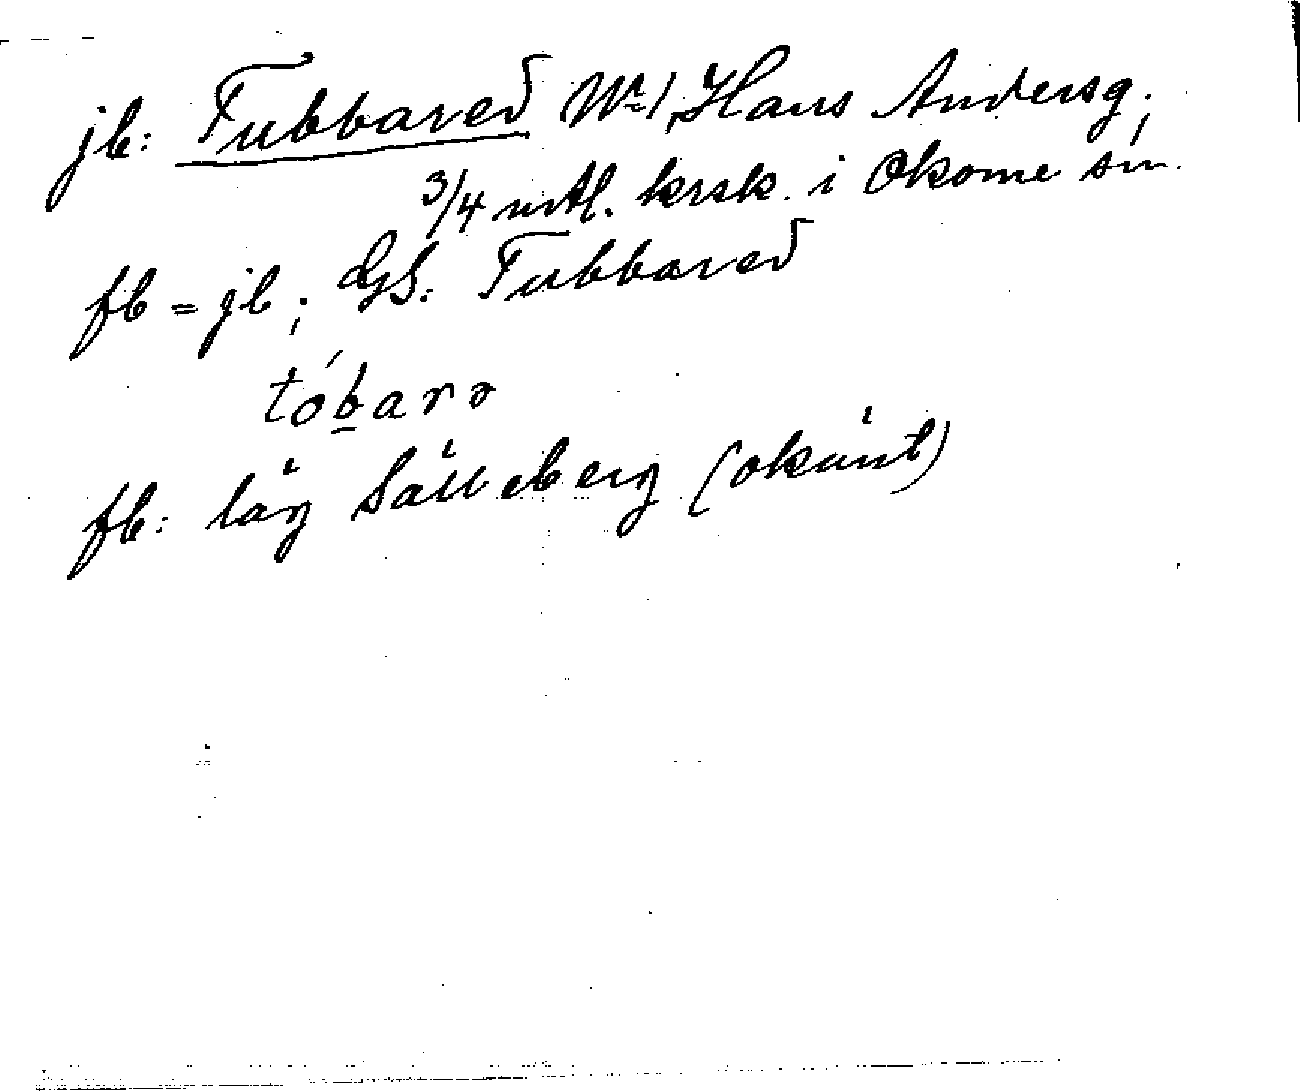 jb: Tubbared Nr 1, Hans Andersg.;
3/4 mtl. krsk. i Okome sn.
fb = jb; GS: Tubbared
tóbarə
fb: låg Sälleberg (okänt)